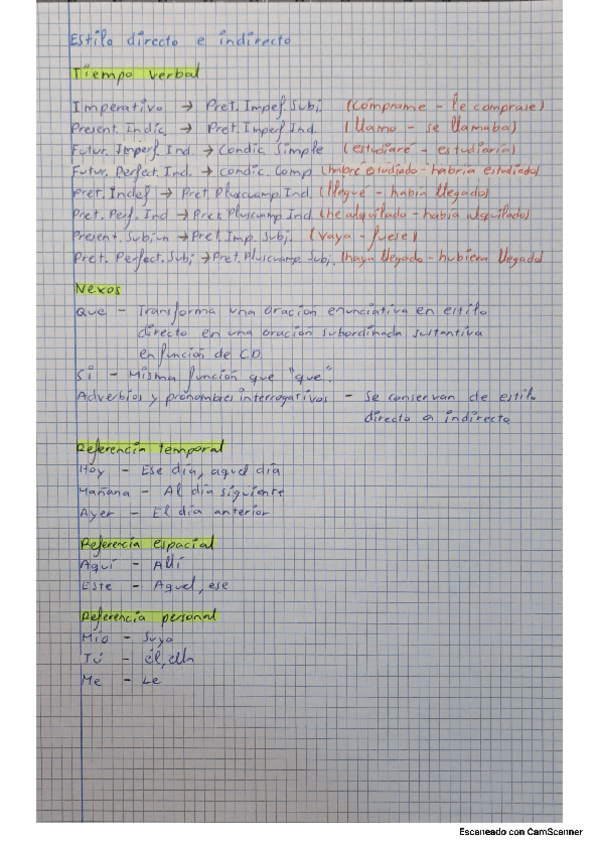 Estilo directo e indirecto
Tiempo verbal
Imperativo → Pret. Impef. Subj. (Cómprame - le comprase)
Present. Indic. → Pret. Imperf Ind. (llamo - se llamaba)
Futur. Imperf. Ind. → Condic Simple (estudiaré - estudiaría)
Futur. Perfect. Ind. → condic. Comp (habré estudiado - habría estudiado)
Pret. Indef → Pret Pluscuamp. Ind. (llegué - había llegado)
Pret. Perf. Ind → Pret Pluscuamp. Ind (he alquilado - había alquilado)
Present. Subjun → Pret. Imp. Subj. (vaya - fuese)
Pret. Perfect. Subj → Pret. Pluscuamp. Subj. (haya llegado - hubiera llegado)
Nexos
Que - Transforma una oración enunciativa en estilo
directo en una oración subordinada sustantiva
en función de CD.
Si - Misma función que "que".
Adverbios y pronombres interrogativos - Se conservan de estilo
directo a indirecto
Referencia temporal
Hoy - Ese día, aquel día
Mañana - Al día siguiente
Ayer - El día anterior
Referencia espacial
Aquí - Allí
Este - Aquel, ese
Referencia personal
Mío - Suyo
Tú - él, ella
Me - Le
Escaneado con CamScanner